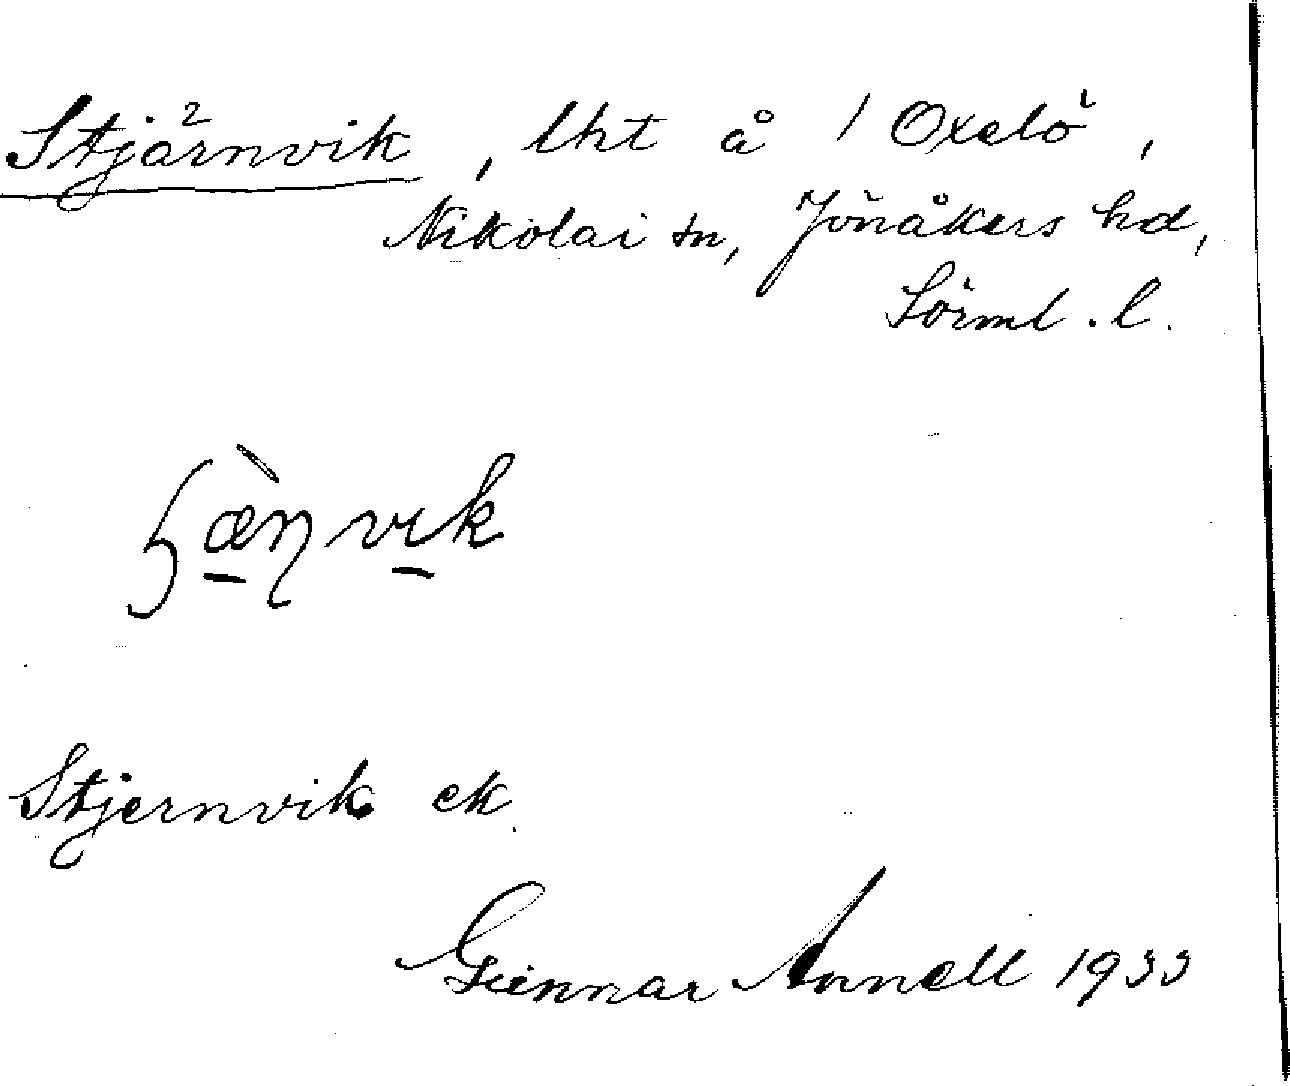 Stjärnvik, lht å 1 Oxelö,
Nikolai sn, Jönåkers hd,
Sörml. l.
vik
Stjernvik ek.
Gunnar Annell 1933